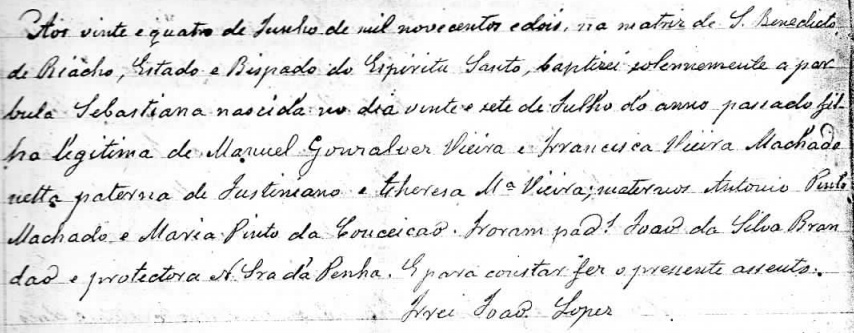 Aos vinte e quatro de Junho de mil novecentos e dois, na matriz de S. Benedicto
de Riacho, Estado e Bispado do Espirito Santo, baptizei solennemente a par
bula Sebastiana nascida no dia vinte e sete de Julho do anno passado fil
ha legitima de Manuel Gonzalvez Vieira e Francisca Vieira Machado
netta paterna de Justiniano e Theresa Mª Vieira; maternos Antonio Pinto
Machado e Maria Pinto da Conceicao. Foram pad.s Joao da Silva Bran
dao e protectora N. Sra da Penha. E para constar fez o presente assento.
Frei Joao Lopez